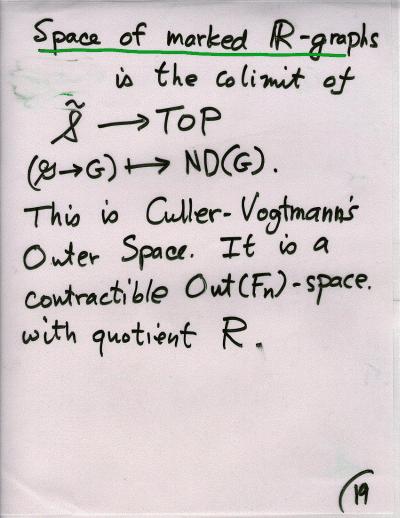 Space of marked R-graphs
is the colimit of
S̃ → TOP
(g→G) ↦ ND(G).
This is Culler-Vogtmann's
Outer Space. It is a
contractible Out(Fn)-space.
with quotient R.
19